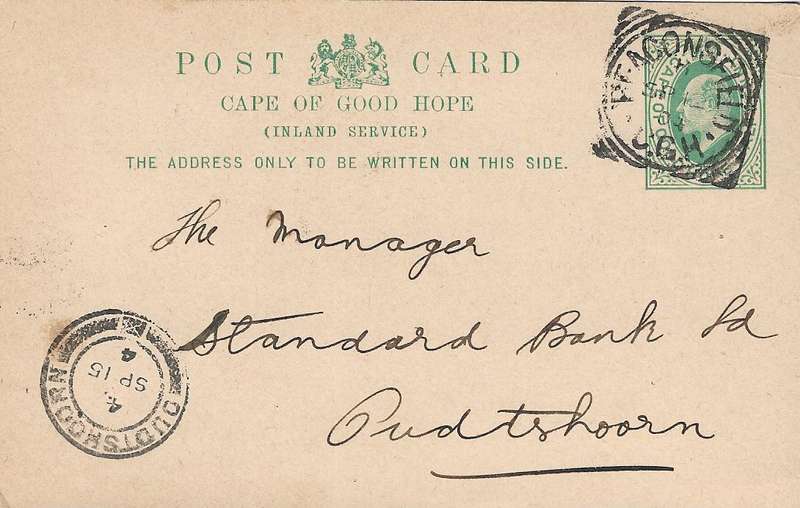 POST CARD
CAPE OF GOOD HOPE
(INLAND SERVICE)
THE ADDRESS ONLY TO BE WRITTEN ON THIS SIDE.
BEACONSFIELD
C.G.H.
The Manager
Standard Bank Ld
Oudtshoorn
OUDTSHOORN
4
SP 15
4